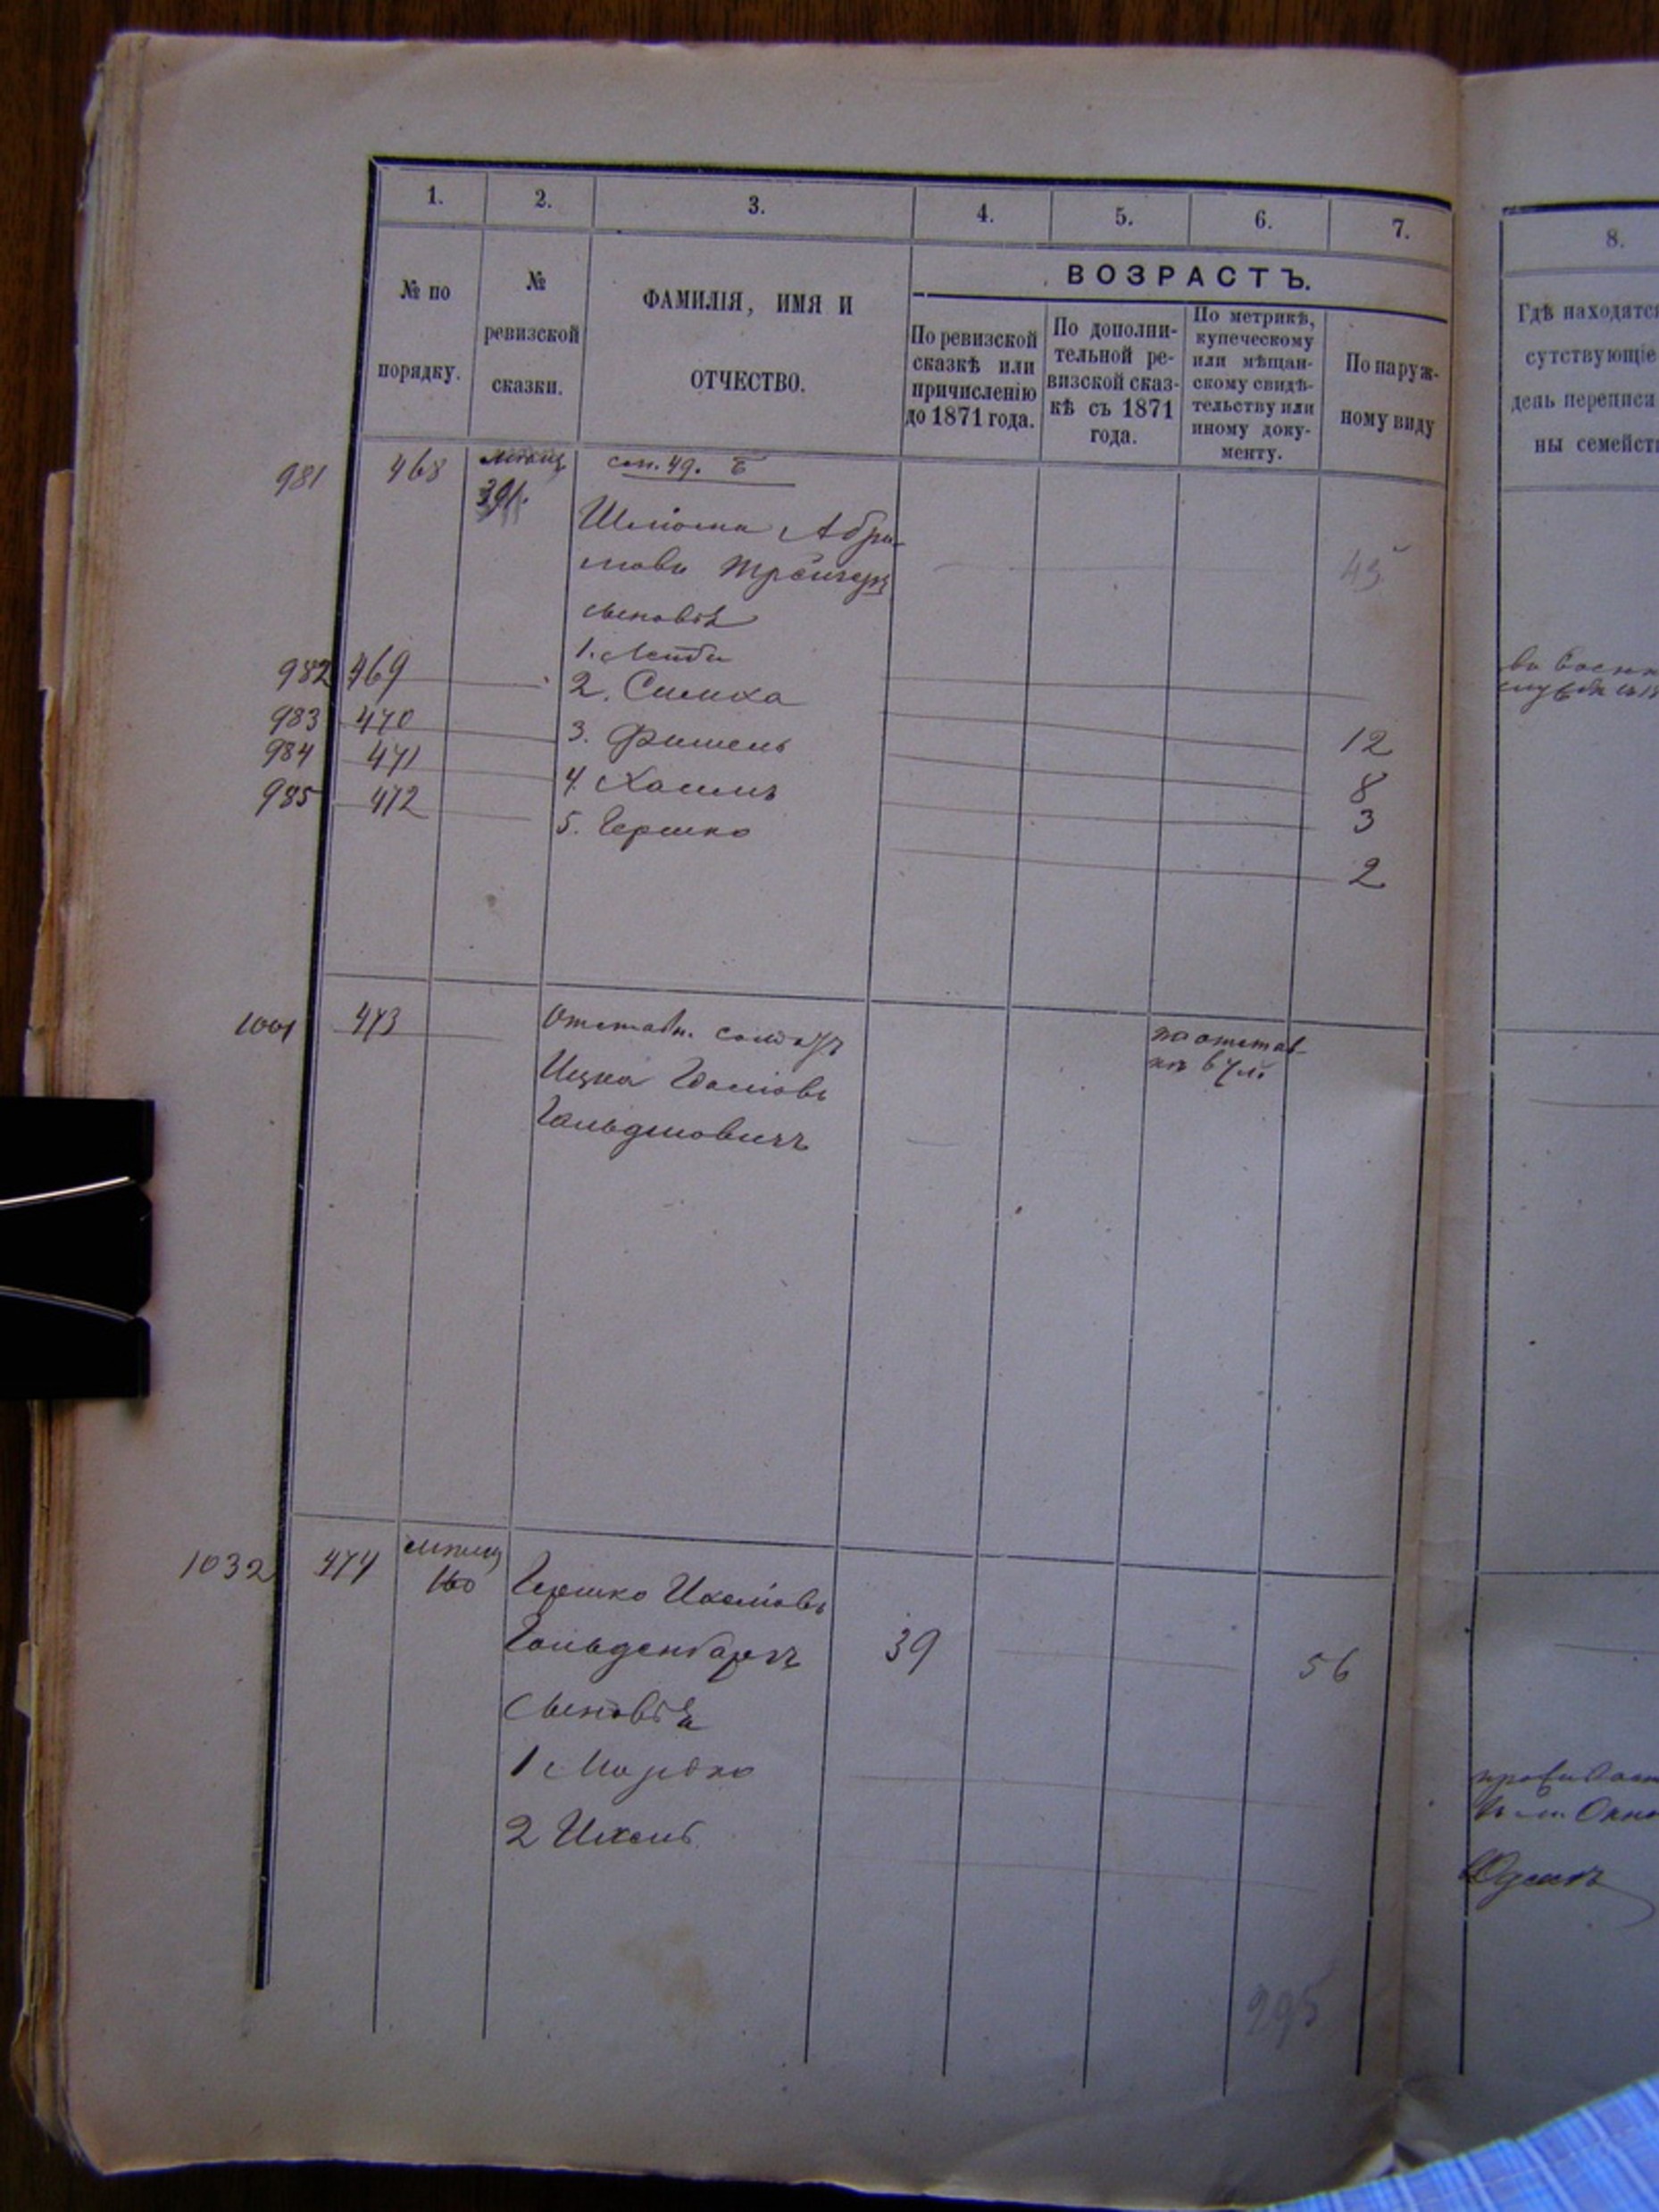 1. 2. 3. 4. 5. 6. 7.
№ по порядку.
№ ревизской сказки.
ФАМИЛІЯ, ИМЯ И ОТЧЕСТВО.
ВОЗРАСТЪ.
По ревизской сказкѣ или причисленію до 1871 года.
По дополни-
тельной ре-
визской сказ-
кѣ съ 1871
года.
По метрикѣ,
купеческому
или мѣщан-
скому свидѣ-
тельству или
иному доку-
менту.
По наруж-
ному виду
8.
Гдѣ находятся
сутствующіе
день переписи
ны семейств
981 468 391.
Шліома Абра-
мовъ
45
сыновья
1. Лейба
982 469 2. Симха 12
983 470 3. Фишель 8
984 471 4. Хаимъ 3
985 472 5. Гершко 2
1001 473 Отставн. солдатъ
Ицка
Гольдшовичъ
по отстав-
1032 474 160 Гершко Ихелiовъ
Гольденбергъ 39 56
Сыновья
1 Мордко
2 Ихель
295